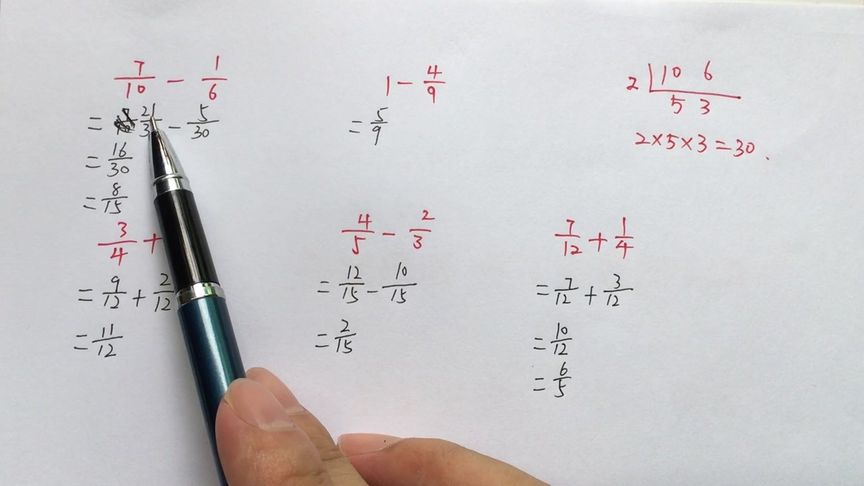 7/10 - 1/6
= 21/3 - 5/30
= 16/30
= 8/15
1 - 4/9
= 5/9
2 | 10 6
5 3
2×5×3=30.
3/4 +
= 9/12 + 2/12
= 11/12
4/5 - 2/3
= 12/15 - 10/15
= 2/15
7/12 + 1/4
= 7/12 + 3/12
= 10/12
= 6/5